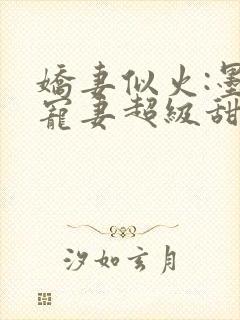 嬌妻似火:墨
寵妻超級甜
汐如玄月